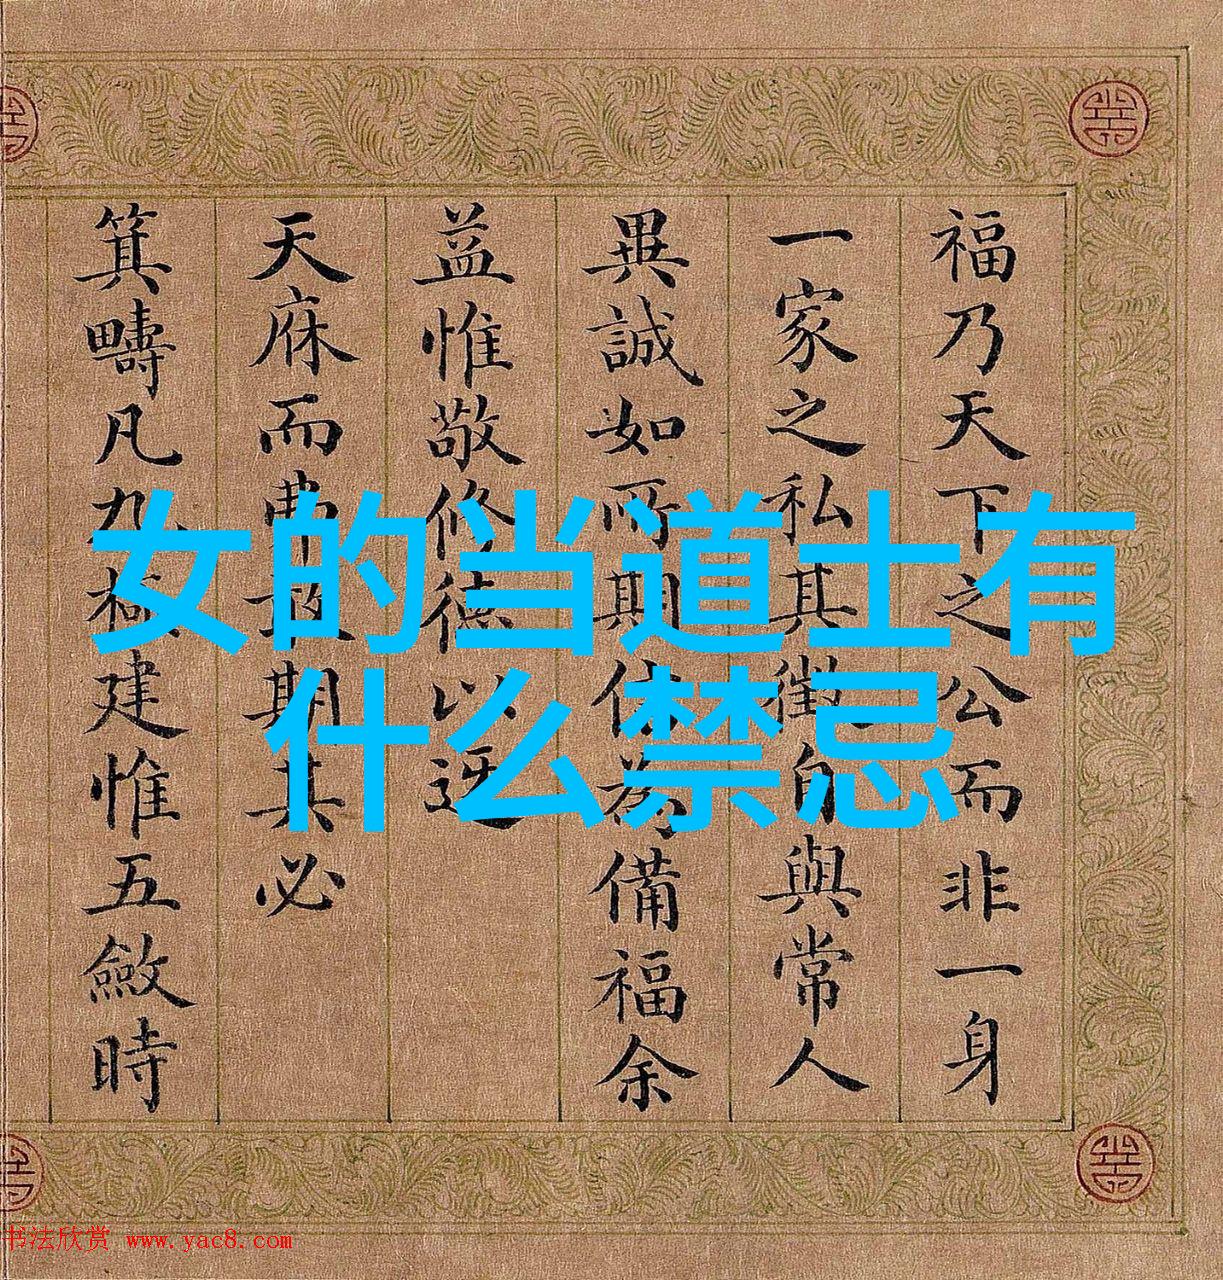 女的当道士有
什么禁忌
福乃天下之公而非一身
一家之私其徵自與常人
異誠如所期為備福余
益惟敬修德以迓
天庥而弗敢期其必
箕疇凡九極建惟五斂時
书法欣赏 www.yac8.com